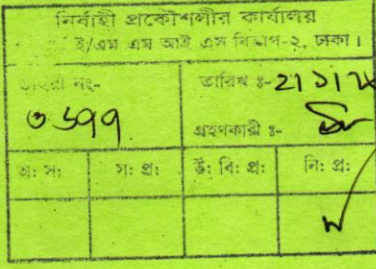 নির্বাহী প্রকৌশলীর কার্যালয়
ই/এম এম আই এস বিভাগ-২, ঢাকা।
ডায়েরী নং-
তারিখ ঃ-
৩৬৭৭
গ্রহণকারী ঃ-
অ: স: সা: প্র: উ: বি: প্র: নি: প্র: